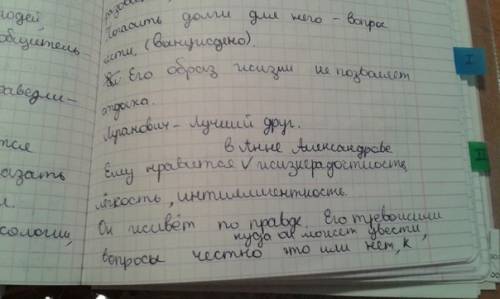 людей,
общитель
раведли-
тся
казать
л.
сологии,
Погасить долги для него - вопрос
ести,
Его образ жизни не позволяет
отдыха.
Луганович - лучший друг.
в Анне Александрове
Ему нравится √ жизнерадостность
лёгкость, интиллигентность.
Он живёт по правде. Его тревожили
куда он может увести,
вопросы честно это или нет, к
I
II